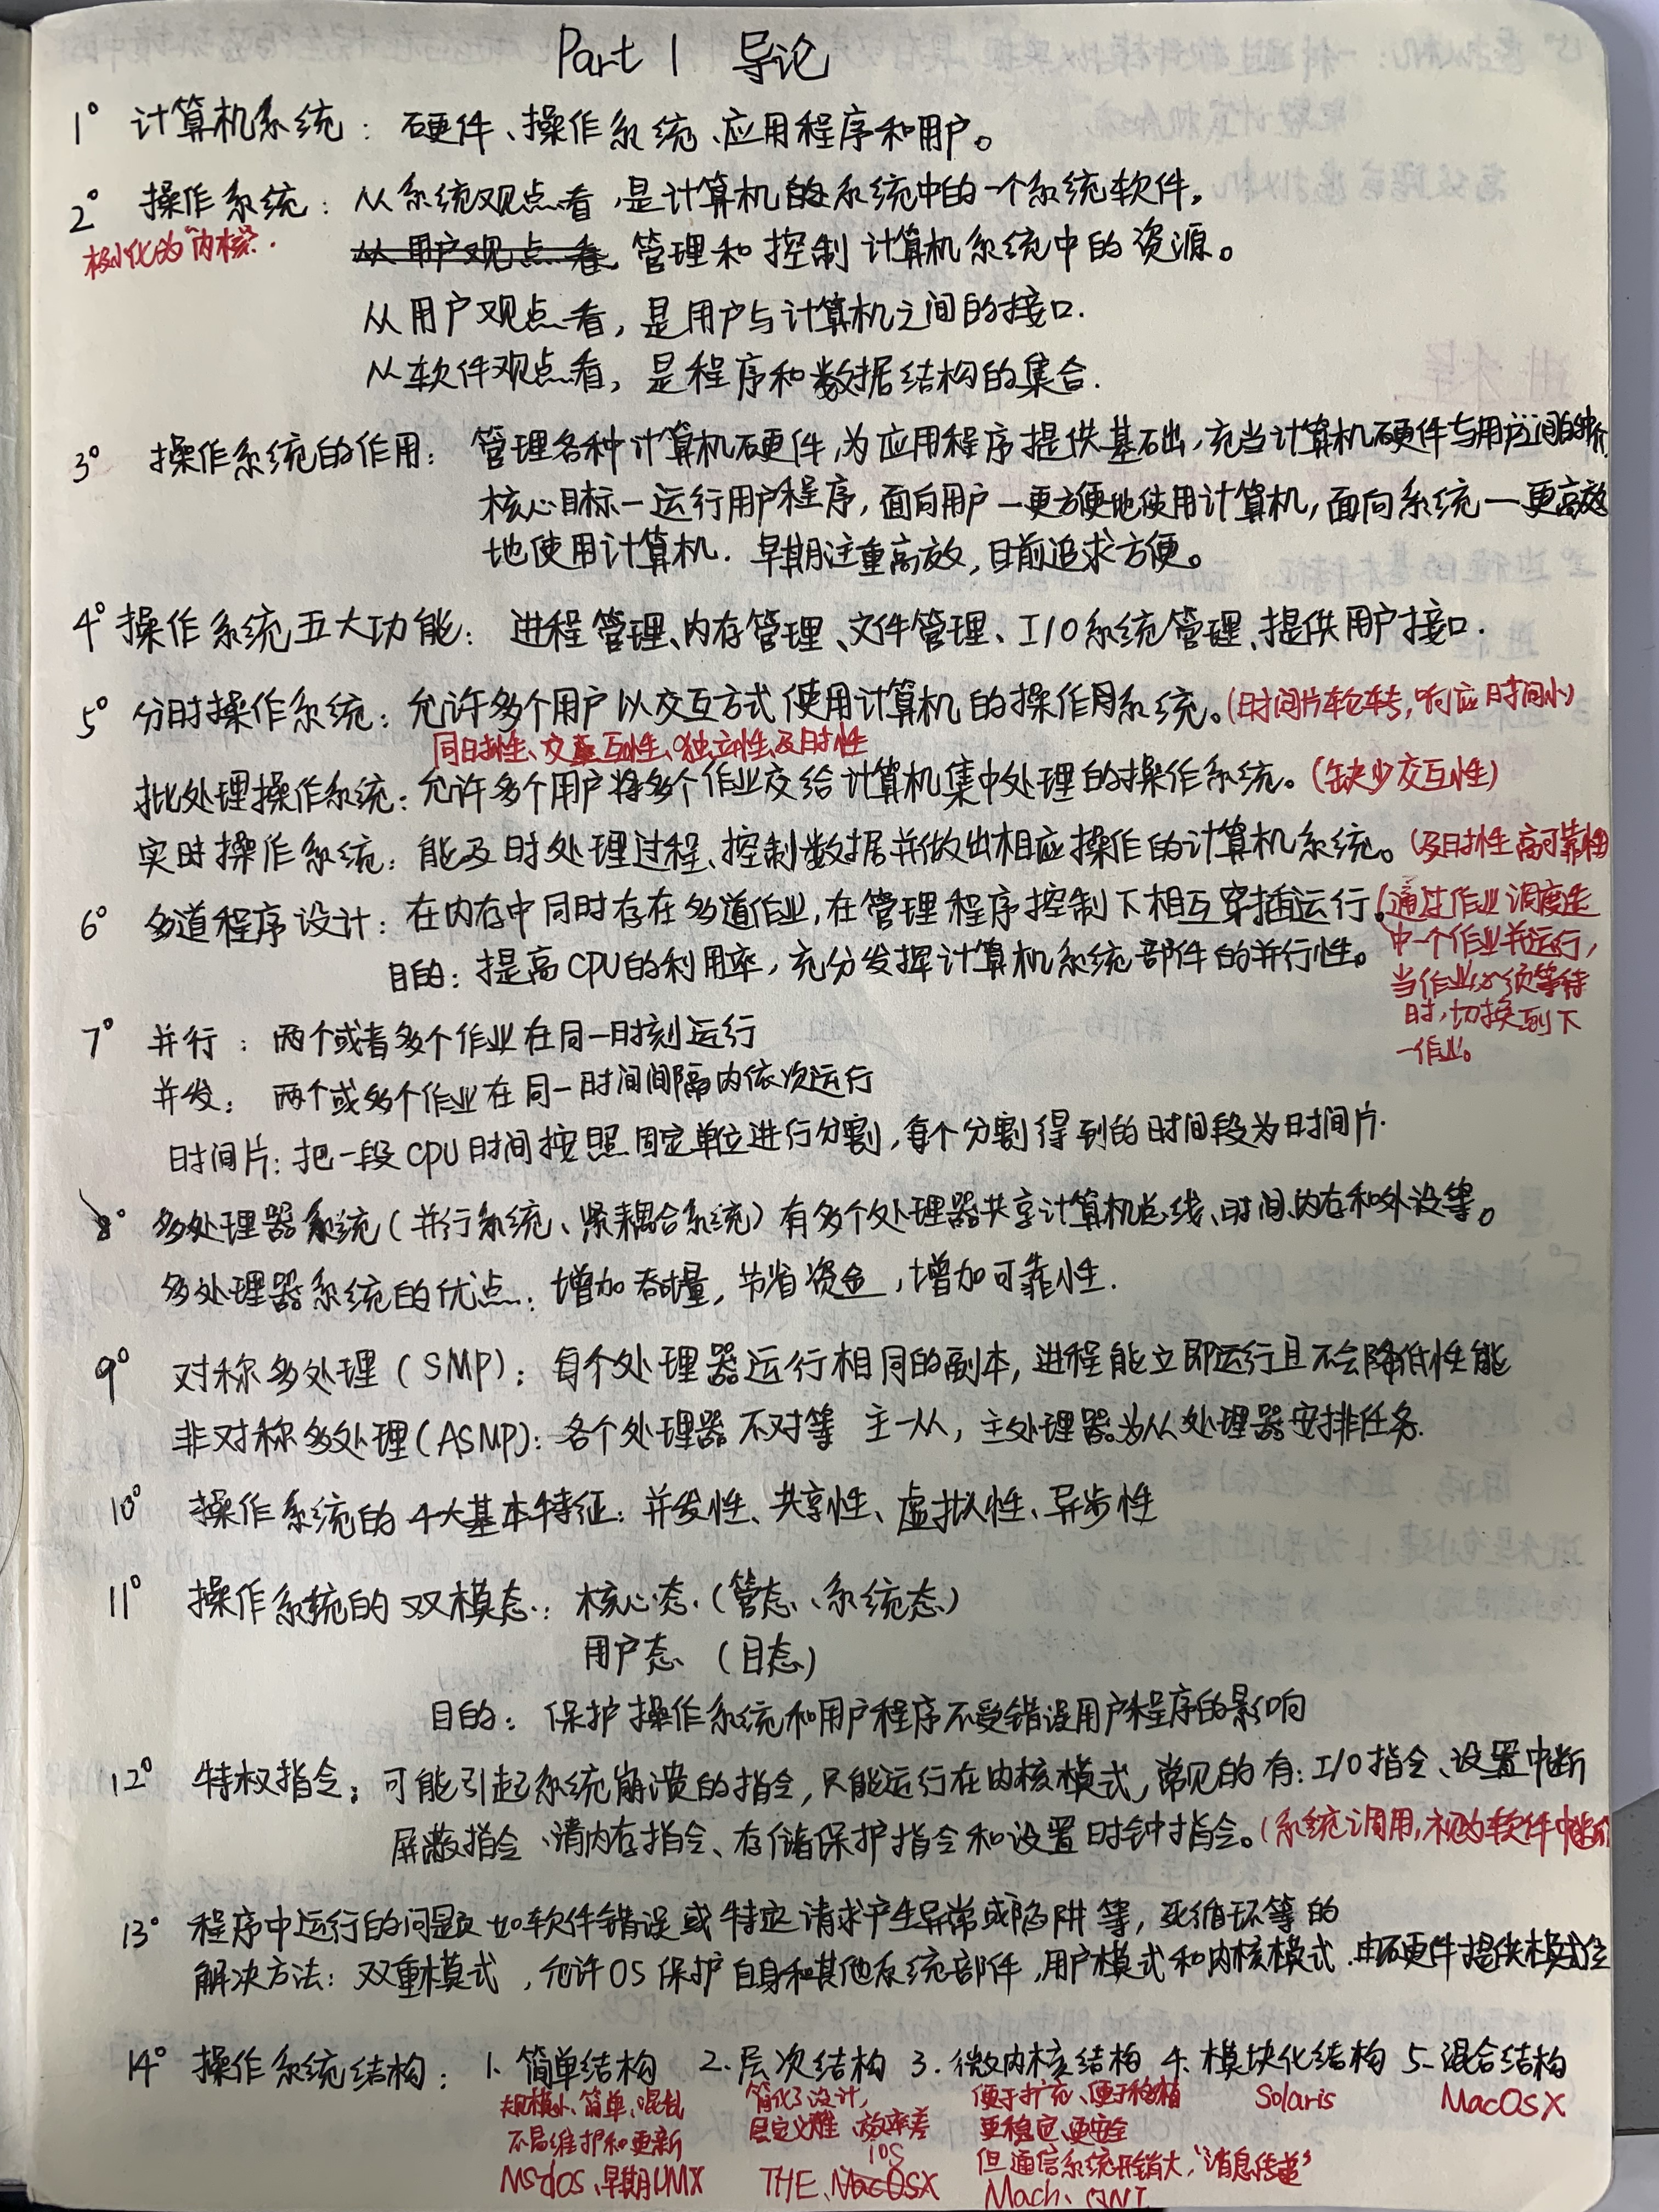 Part 1 导论
1° 计算机系统：硬件、操作系统、应用程序和用户。
2° 操作系统：从系统观点看，是计算机的系统中的一个系统软件，
极小化的"内核".
管理和控制计算机系统中的资源。
从用户观点看，是用户与计算机之间的接口.
从软件观点看，是程序和数据结构的集合.
3° 操作系统的作用：管理各种计算机硬件，为应用程序提供基础，充当计算机硬件与用户之间的中介.
核心目标一运行用户程序，面向用户一更方便地使用计算机，面向系统一更高效
地使用计算机. 早期注重高效，目前追求方便。
4° 操作系统五大功能：进程管理、内存管理、文件管理、I/O系统管理、提供用户接口.
5° 分时操作系统：允许多个用户以交互方式使用计算机的操作系统。(时间片轮转，响应时间小)
同时性、交互性、独立性、及时性
批处理操作系统：允许多个用户将多个作业交给计算机集中处理的操作系统。(缺少交互性)
实时操作系统：能及时处理过程、控制数据并做出相应操作的计算机系统。(及时性高可靠性)
6° 多道程序设计：在内存中同时存在多道作业，在管理程序控制下相互穿插运行。(通过作业调度选
中一个作业并运行，
目的：提高CPU的利用率，充分发挥计算机系统部件的并行性。
当作业必须等待
时，切换到下
一作业。
7° 并行：两个或者多个作业在同一时刻运行
并发：两个或多个作业在同一时间间隔内依次运行
时间片：把一段CPU时间按照固定单位进行分割，每个分割得到的时间段为时间片.
8° 多处理器系统(并行系统、紧耦合系统)有多个处理器共享计算机总线、时间、内存和外设等。
多处理器系统的优点：增加吞吐量，节省资金，增加可靠性.
9° 对称多处理(SMP)：每个处理器运行相同的副本，进程能立即运行且不会降低性能
非对称多处理(ASMP)：各个处理器不对等 主一从，主处理器为从处理器安排任务.
10° 操作系统的4大基本特征：并发性、共享性、虚拟性、异步性
11° 操作系统的双模态：核心态(管态、系统态)
用户态 (目态)
目的：保护操作系统和用户程序不受错误用户程序的影响
12° 特权指令：可能引起系统崩溃的指令，只能运行在内核模式，常见的有：I/O指令、设置中断
屏蔽指令、清内存指令、存储保护指令和设置时钟指令。(系统调用，视为软件中断)
13° 程序中运行的问题如软件错误或特定请求产生异常或陷阱等，死循环等的
解决方法：双重模式，允许OS保护自身和其他系统部件，用户模式和内核模式.由硬件提供模式位
14° 操作系统结构：1. 简单结构 2. 层次结构 3. 微内核结构 4. 模块化结构 5. 混合结构
规模小、简单、混乱 简化了设计， 便于扩充、便于移植 Solaris MacOsX
不易维护和更新 层定义难、效率差 更稳定、更安全
iOS 但通信系统开销大，"消息传递"
MSdos、早期UNIX THE、MacOsX Mach、QNT